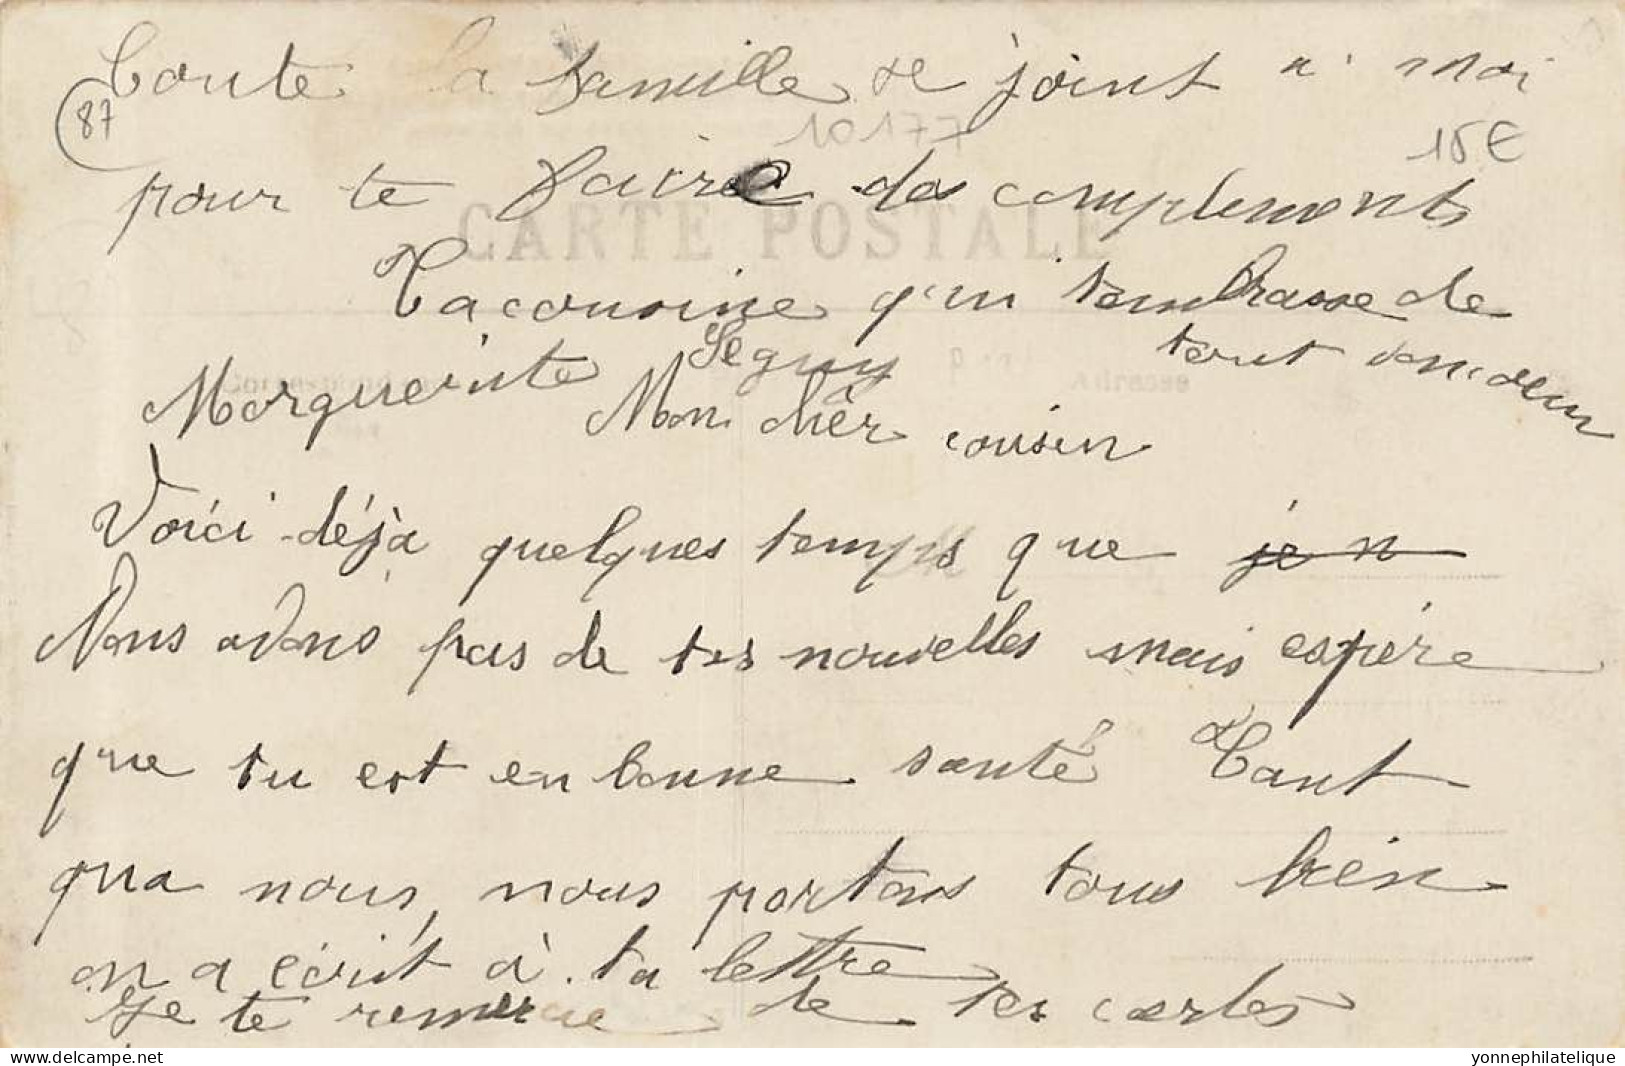 Toute la famille se joint a moi
(87
10177
15€
pour te faire des complements
CARTE POSTALE
Ta cousine qui tembrasse de
tout son cœur
Marguerite Seguy
Correspondance
Adresse
Mon chèr cousin
Voici déja quelques temps que je n
Nous avons pas de tes nouvelles mais espére
que tu est en bonne santé Tant
qua nous, nous portons tous bien
on a écrit à ta lettre
Je te remercie de tes cartes
delcampe.net
yonnephilatelique